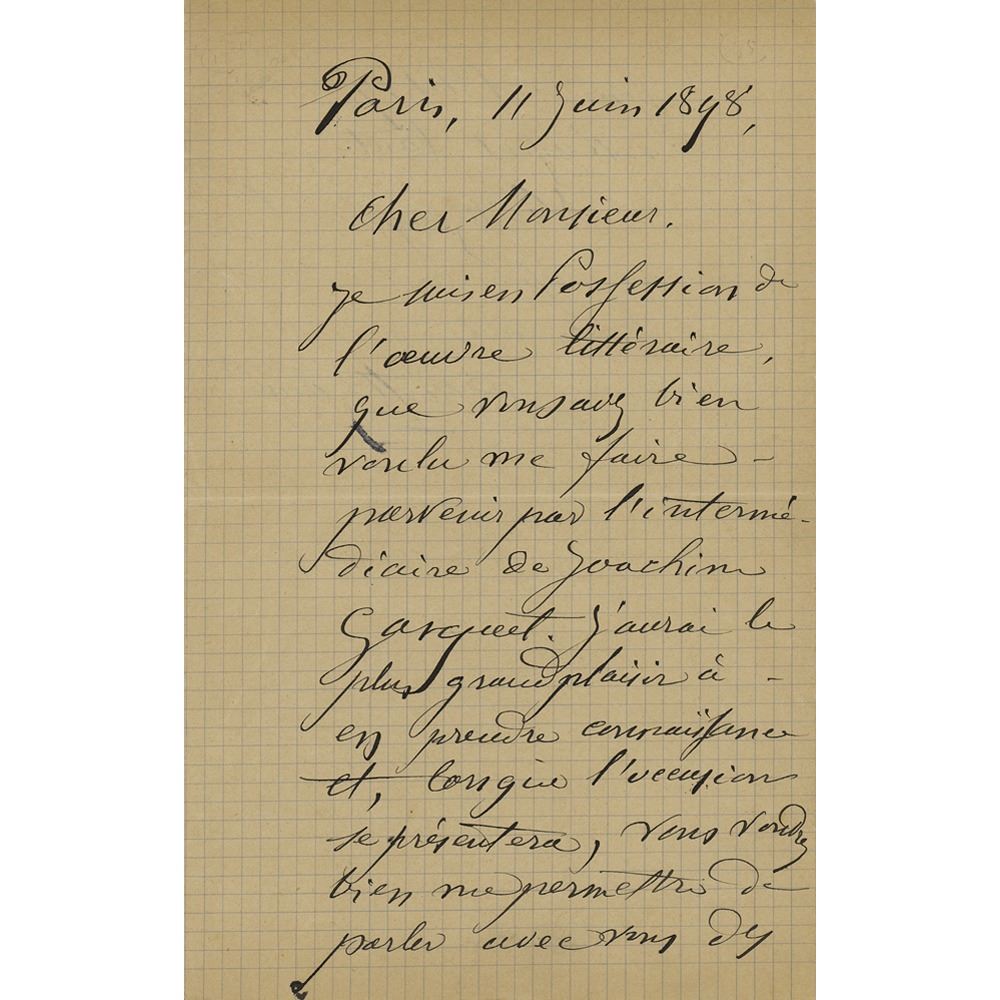 Paris, 11 Juin 1898,
Cher Monsieur.
je suis en Possession de
l'œuvre littéraire,
que vous avez bien
voulu me faire -
parvenir par l'intermé-
diaire de Joachim
Gasquet. J'aurai le
plus grand plaisir à -
en prendre connaissance
et, lorsque l'occasion
se présentera, vous voudrez
bien me permettre de
parler avec vous des